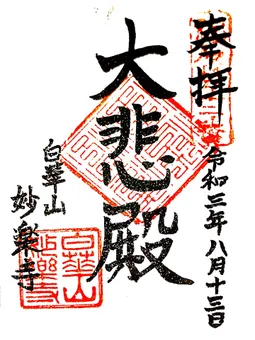 奉拝
令和三年八月十三日
大悲殿
白華山
妙楽寺
白華山
妙樂寺